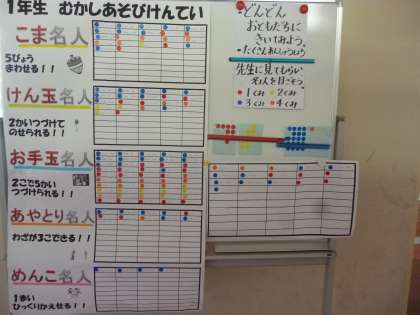 1年生 むかしあそびけんてい
こま名人
5びょう
まわせる！！
けん玉名人
2かいつづけて
のせられる！！
お手玉名人
2こで5かい
つづけられる！！
あやとり名人
わざが3こできる！！
めんこ名人
1まい
ひっくりかえせる！！
どんどん
おともだちに
きいてみよう。
先生に見てもらい
名人を目ざそう。
1くみ 2くみ
3くみ 4くみ